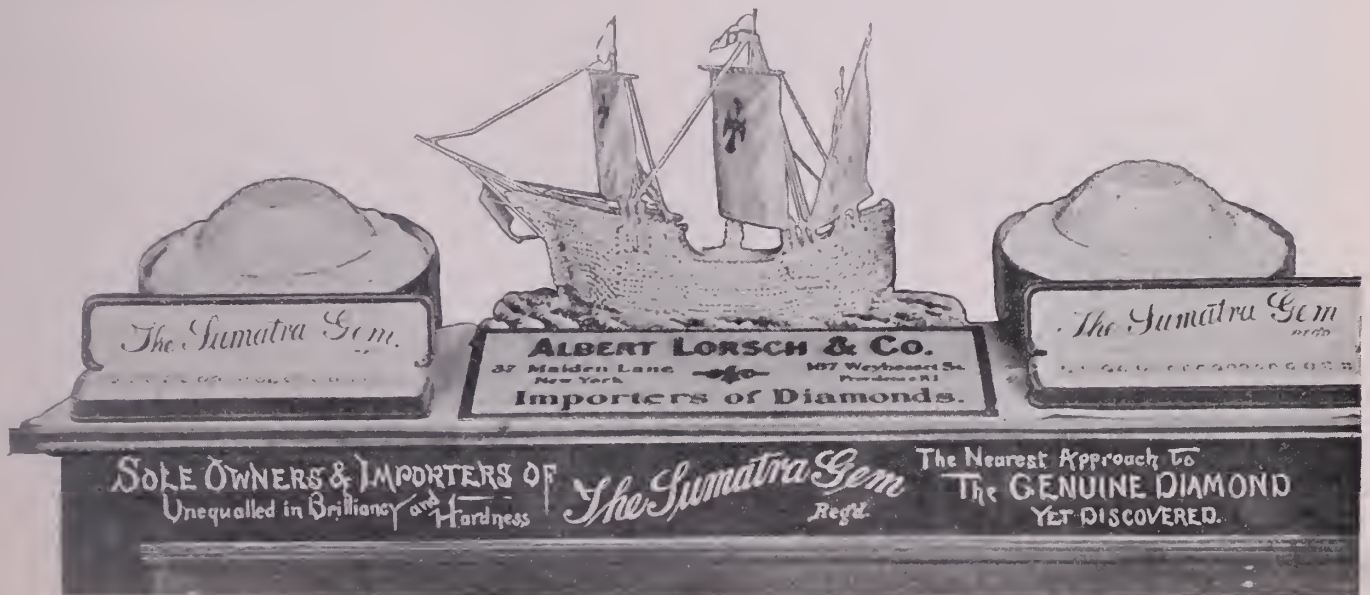 The Sumatra Gem.
ALBERT LORSCH & CO.
37 Maiden Lane
New York
167 Weybosset St.
Providence R.I.
Importers of Diamonds.
The Sumatra Gem
Reg'd.
SOLE OWNERS & IMPORTERS OF
Unequalled in Brilliancy and Hardness
The Sumatra Gem
Reg'd.
The Nearest Approach To
The GENUINE DIAMOND
YET DISCOVERED.